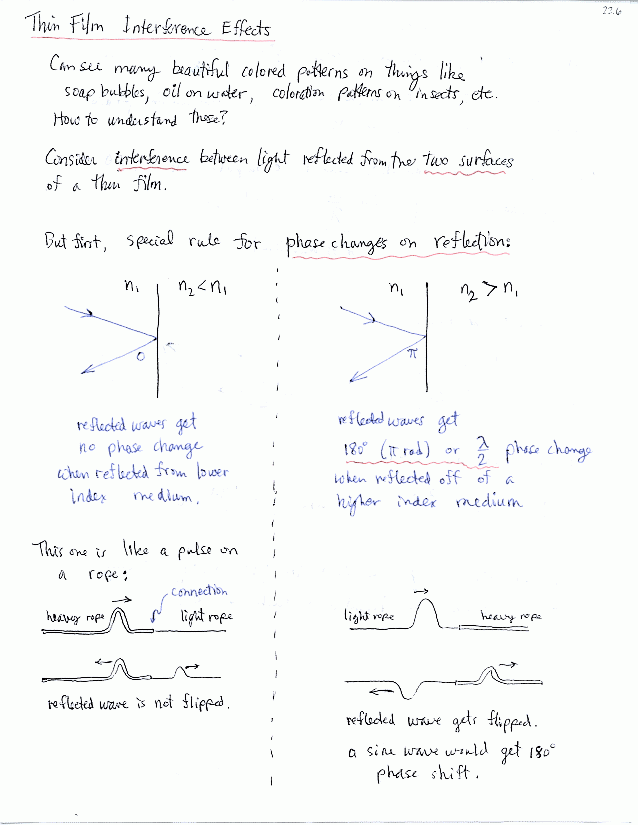 22.6
Thin Film Interference Effects
Can see many beautiful colored patterns on things like
soap bubbles, oil on water, coloration patterns on insects, etc.
How to understand these?
Consider interference between light reflected from the two surfaces
of a thin film.
But first, special rule for phase changes on reflection:
n₁ n₂ < n₁
0
reflected waves get
no phase change
when reflected from lower
index medium.
n₁ n₂ > n₁
π
reflected waves get
180° (π rad) or λ/2 phase change
when reflected off of a
higher index medium
This one is like a pulse on
a rope:
connection
heavy rope light rope
reflected wave is not flipped.
light rope heavy rope
reflected wave gets flipped.
a sine wave would get 180°
phase shift.